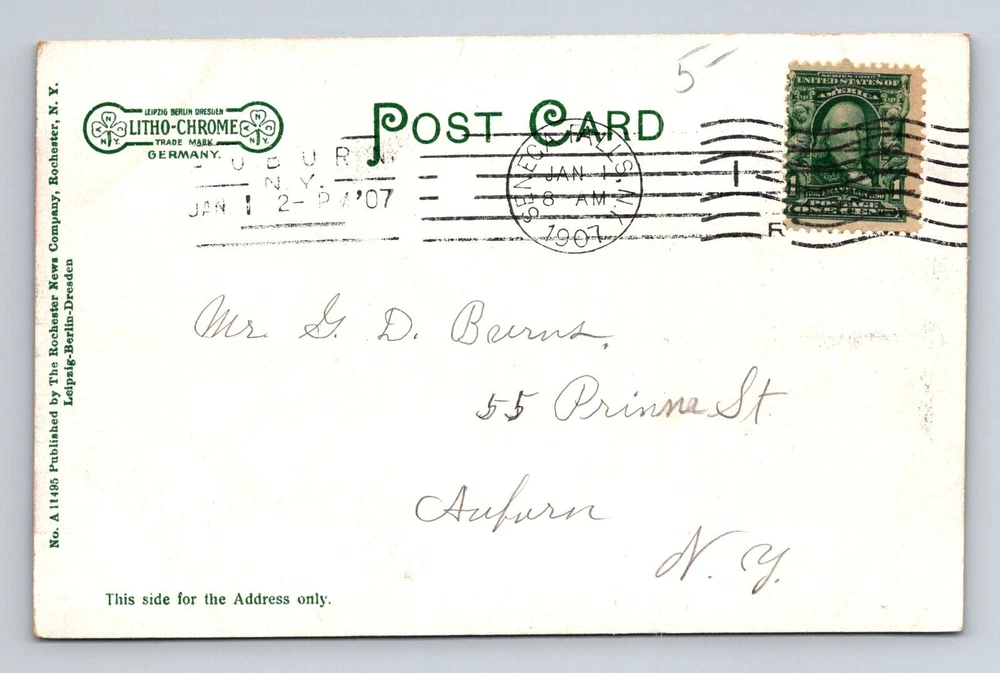 5
LEIPZIG BERLIN DRESDEN
LITHO-CHROME
TRADE MARK
GERMANY.
N.Y.
N.Y.
POST CARD
SERIES 1902
UNITED STATES OF
AMERICA
1
POSTAGE
ONE CENT
UBURN.
N.Y.
JAN 1 2- P M '07
SENECA FALLS, N.Y.
JAN 1
8 AM
1907
1
Mr. G. D. Burns,
55 Prinna St
Auburn
N. Y.
This side for the Address only.
No. A 11495 Published by The Rochester News Company, Rochester, N. Y.
Leipzig-Berlin-Dresden